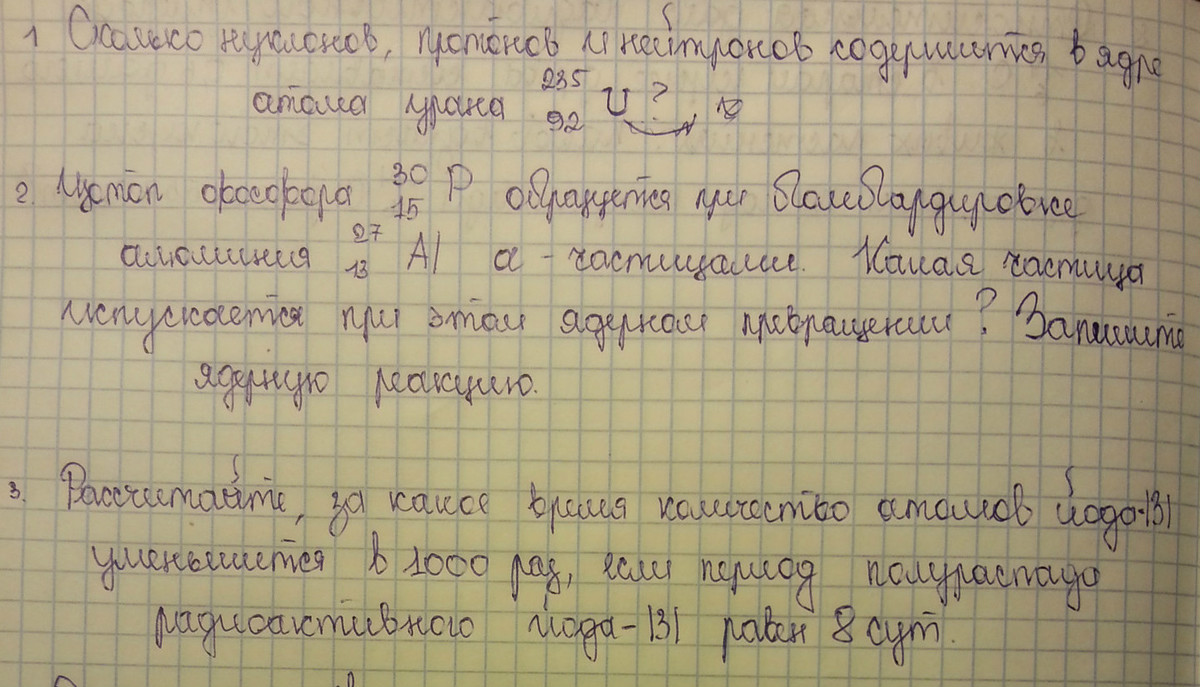 1 Сколько нуклонов, протонов и нейтронов содержится в ядре
атома урана ²³⁵₉₂ U ?
2. Изотоп фосфора ³⁰₁₅ P образуется при бомбардировке
алюминия ²⁷₁₃ Al α - частицами. Какая частица
испускается при этом ядерном превращении ? Запишите
ядерную реакцию.
3. Рассчитайте, за какое время количество атомов йода-131
уменьшится в 1000 раз, если период полураспада
радиоактивного йода-131 равен 8 сут.